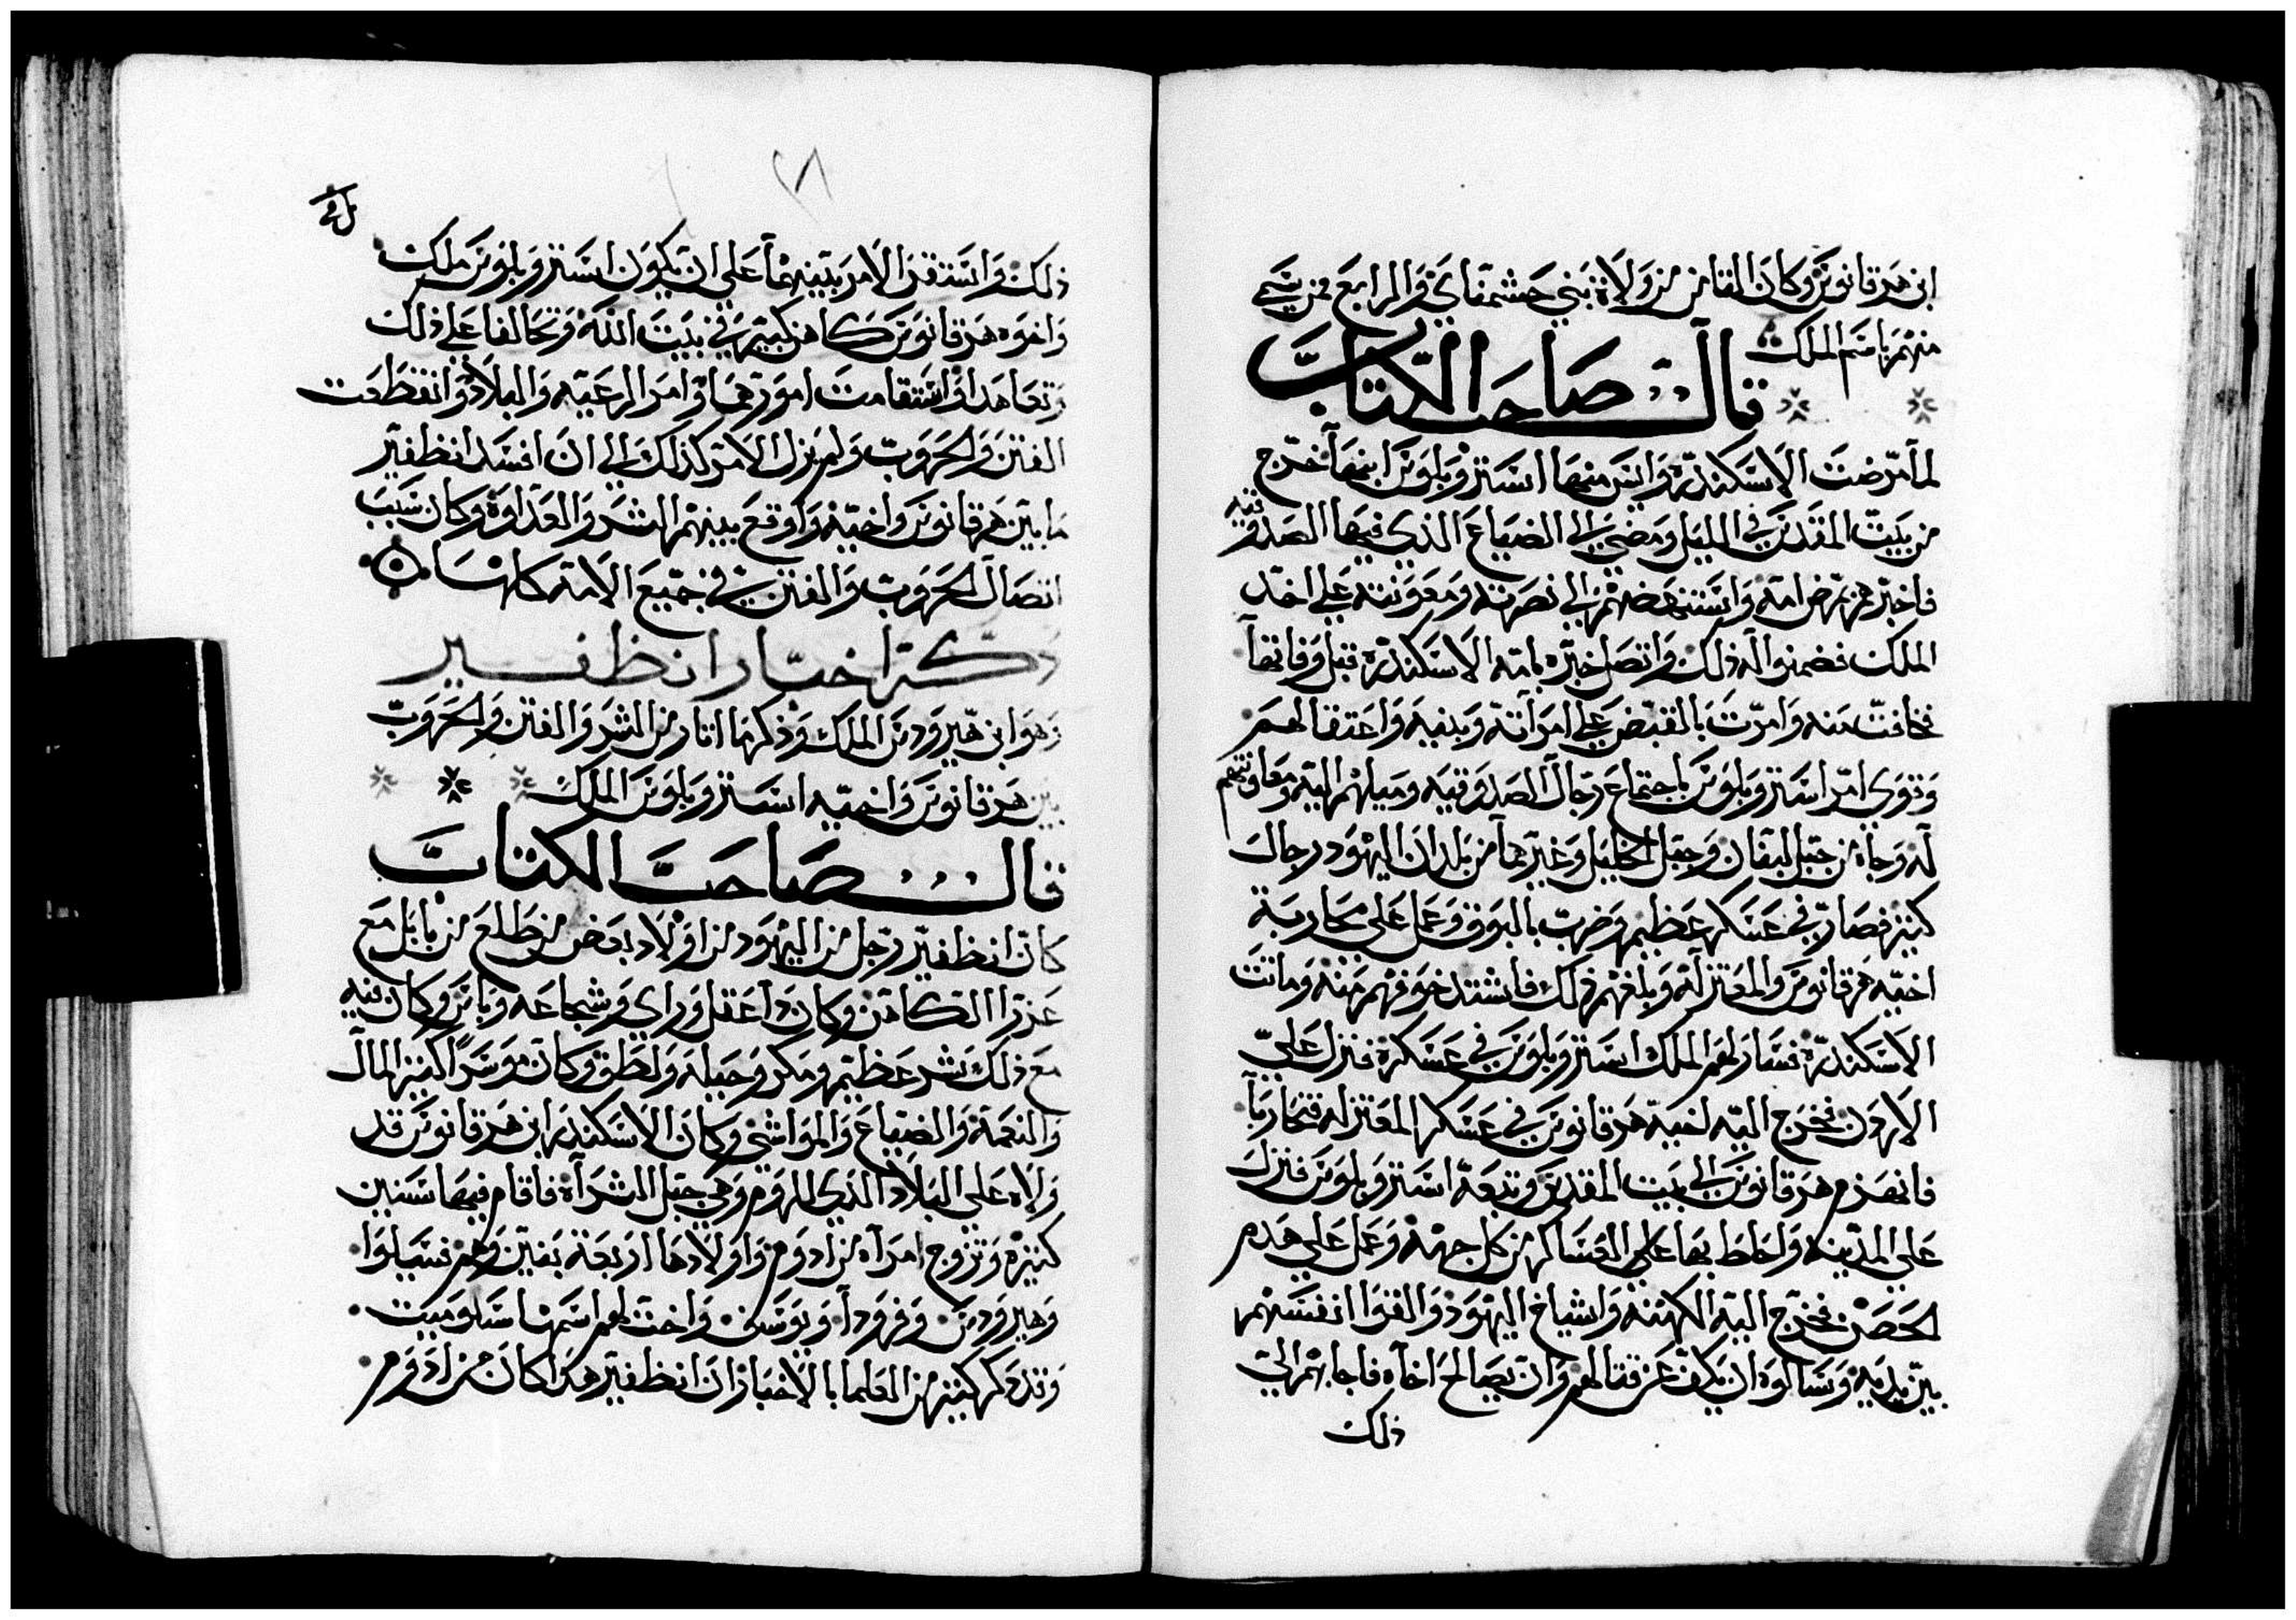 ابن هرقانوس وكان الثامن من ولاة بني حشمناي والرابع ممن تسمي
منهم باسم الملك
قال صاحب الكتاب
لما مرضت الاسكندره وايس منها استروبلوس ابنها خرج
من بيت المقدس في الليل ومضي الي الضياع الذي فيها الصدوقيه
فاخبرهم بمرض امه واستنهضهم الي نصرته ومعونته علي اخذ
الملك فضمنوا له ذلك واتصل خبره بامه الاسكندره قبل وفاتها
فخافت منه وامرت بالقبض علي امراته وبنيه واعتقالهم
وقوي امر استروبلوس باجتماع رجال الصدوقيه وميلهم اليه ومعاونتهم
له وجاه من جبل لبنان وجبل الخليل وغيرهما من بلدان اليهود رجال
كثير فصار في عسكر عظيم وضرب بالبوق وعمل علي محاربة
اخيه هرقانوس والمعتزله وبلغهم ذلك فاشتد خوفهم منه وماتت
الاسكندره فسار لهم الملك استروبلوس في عسكره فنزل علي
الاردن فخرج اليه اخيه هرقانوس في عسكر المعتزله فتحاربا
فانهزم هرقانوس الي بيت المقدس وتبعه استروبلوس فنزل
علي المدينه واحاط بها علي العساكر من كل جهة وعمل علي هدم
الحصن فخرج اليه الكهنه واشياخ اليهود والقوا انفسهم
بين يديه وسالوه ان يكف عن قتالهم وان يصالح اخاه فاجابهم الي
ذلك
٢٨
ذلك واستقر الامر بينهما علي ان يكون استروبلوس ملك
واخوه هرقانوس كاهن كبير في بيت الله وتحالفا علي ذلك
وتعاهدا واستقامت امورهما وامر الرعيه والبلاد وانقطعت
الفتن والحروب ولم يزل الامر كذلك الي ان افسد انظفير
ما بين هرقانوس واخيه واوقع بينهم الشر والعداوة وكان سبب
اتصال الحروب والفتن في جميع الامة كلها
ذكر اخبار انظفير
وهو ابي هيرودس الملك وذكر ما اثار من الشر والفتن والحروب
بين هرقانوس واخيه استروبلوس الملك
قال صاحب الكتاب
كان انظفير رجل من اليهود من اولاد بعض من طلع من بابل مع
عزرا الكاهن وكان ذا عقل وراي وشجاعه وباس وكان فيه
مع ذلك شر عظيم ومكر وحيله ولطف وكان موسرا كثير المال
والنعمة والضياع والمواشي وكان الاسكندر ابن هرقانوس قد
ولاه علي البلاد الذي للروم وهي جبل الشراه فاقام فيها سنين
كثيره وتزوج امراه من ادوم واولادها اربعة بنين وهم فسيلوا
وهيرودس وفرودا ويوسف واخت لهم اسمها سلوميت
وقد ذكر كثير من العلما بالاخبار ان انظفير هذا كان من ادوم